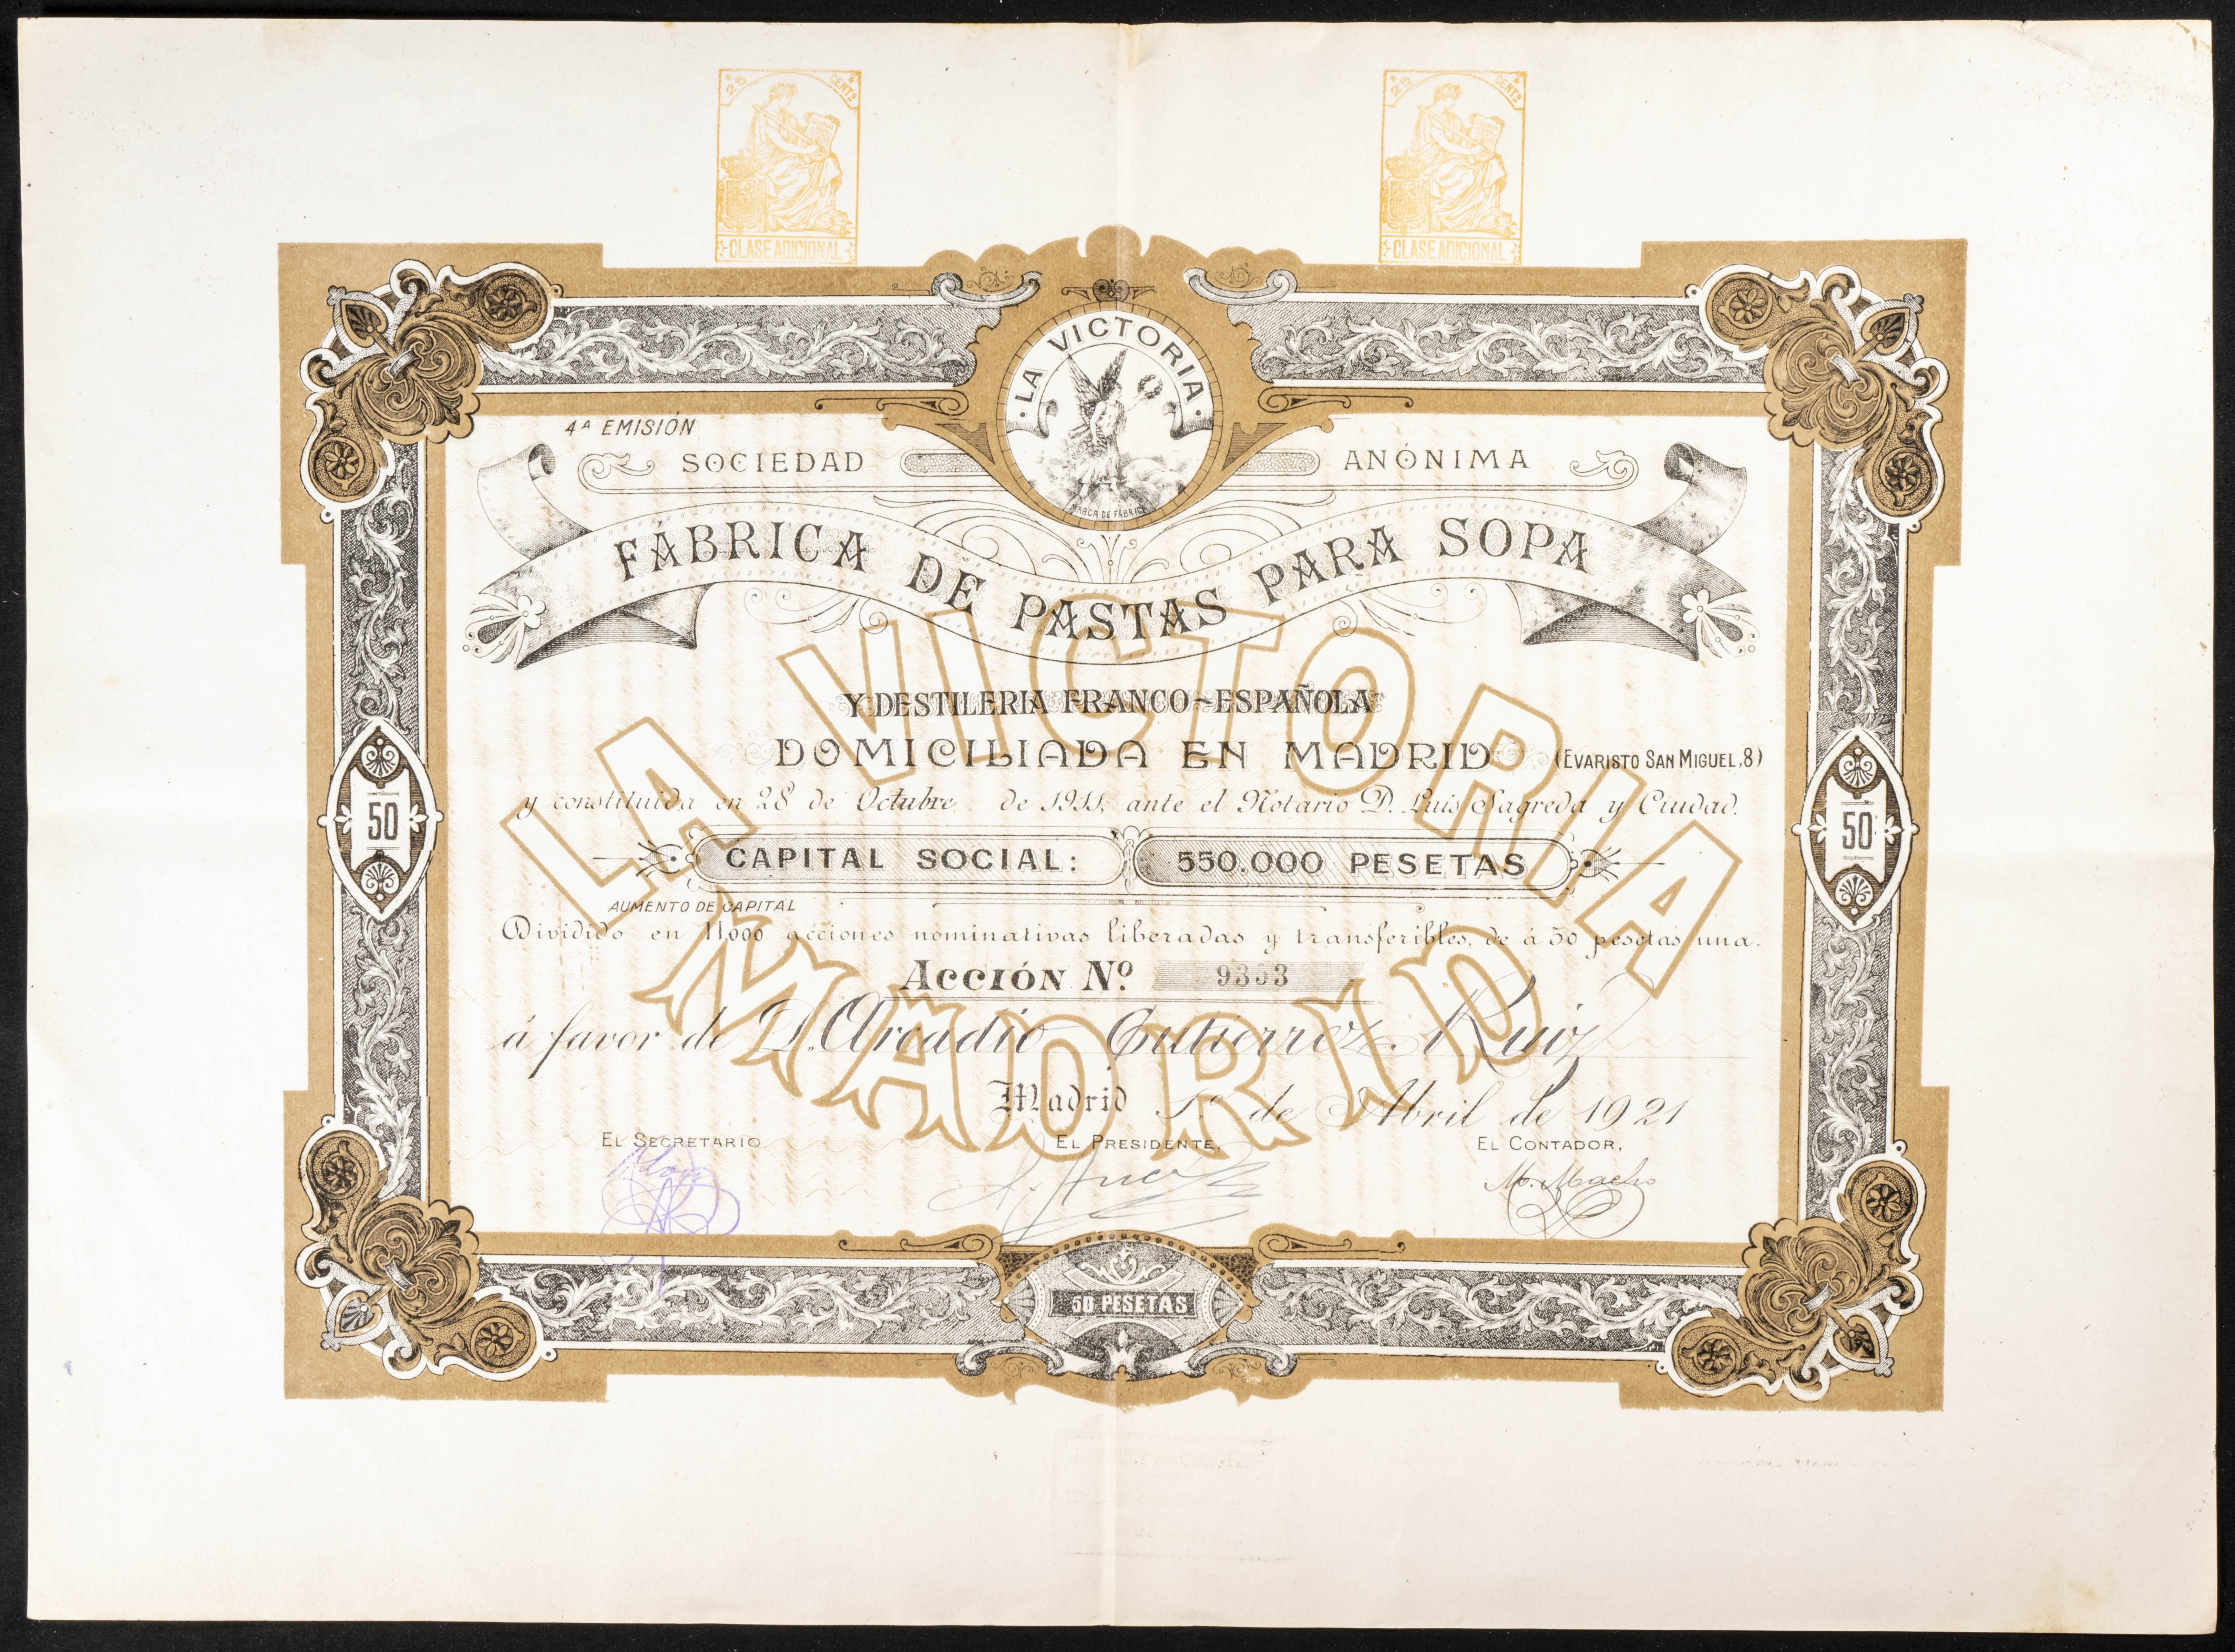 25 CENTS
CLASE ADICIONAL
25 CENTS
CLASE ADICIONAL
LA VICTORIA
MARCA DE FÁBRICA
4ª EMISIÓN
SOCIEDAD ANÓNIMA
FÁBRICA DE PASTAS PARA SOPA
Y DESTILERIA FRANCO-ESPAÑOLA
DOMICILIADA EN MADRID (EVARISTO SAN MIGUEL, 8)
y constituida en 28 de Octubre de 1911, ante el Notario D. Luis Sagreda y Ciudad.
CAPITAL SOCIAL: 550.000 PESETAS
AUMENTO DE CAPITAL
Dividido en 11,000 acciones nominativas liberadas y transferibles, de á 50 pesetas una.
ACCIÓN Nº 9333
á favor de D. Arcadio Gutierrez Ruiz
Madrid 1º de Abril de 1921
EL SECRETARIO EL PRESIDENTE, EL CONTADOR,
M. Macho
LA VICTORIA
MADRID
50
50
50 PESETAS